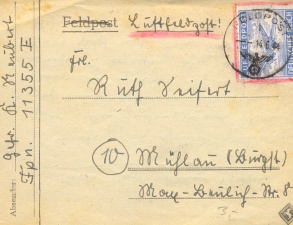 Feldpost Luftfeldpost!
Frl.
Ruth Seifert
(10) Mühlau (Burgst)
Max-Beulich-Str. 8
3-
Absender:
Gefr. K. Neubert
Fpn. 11355 E
FELDPOST